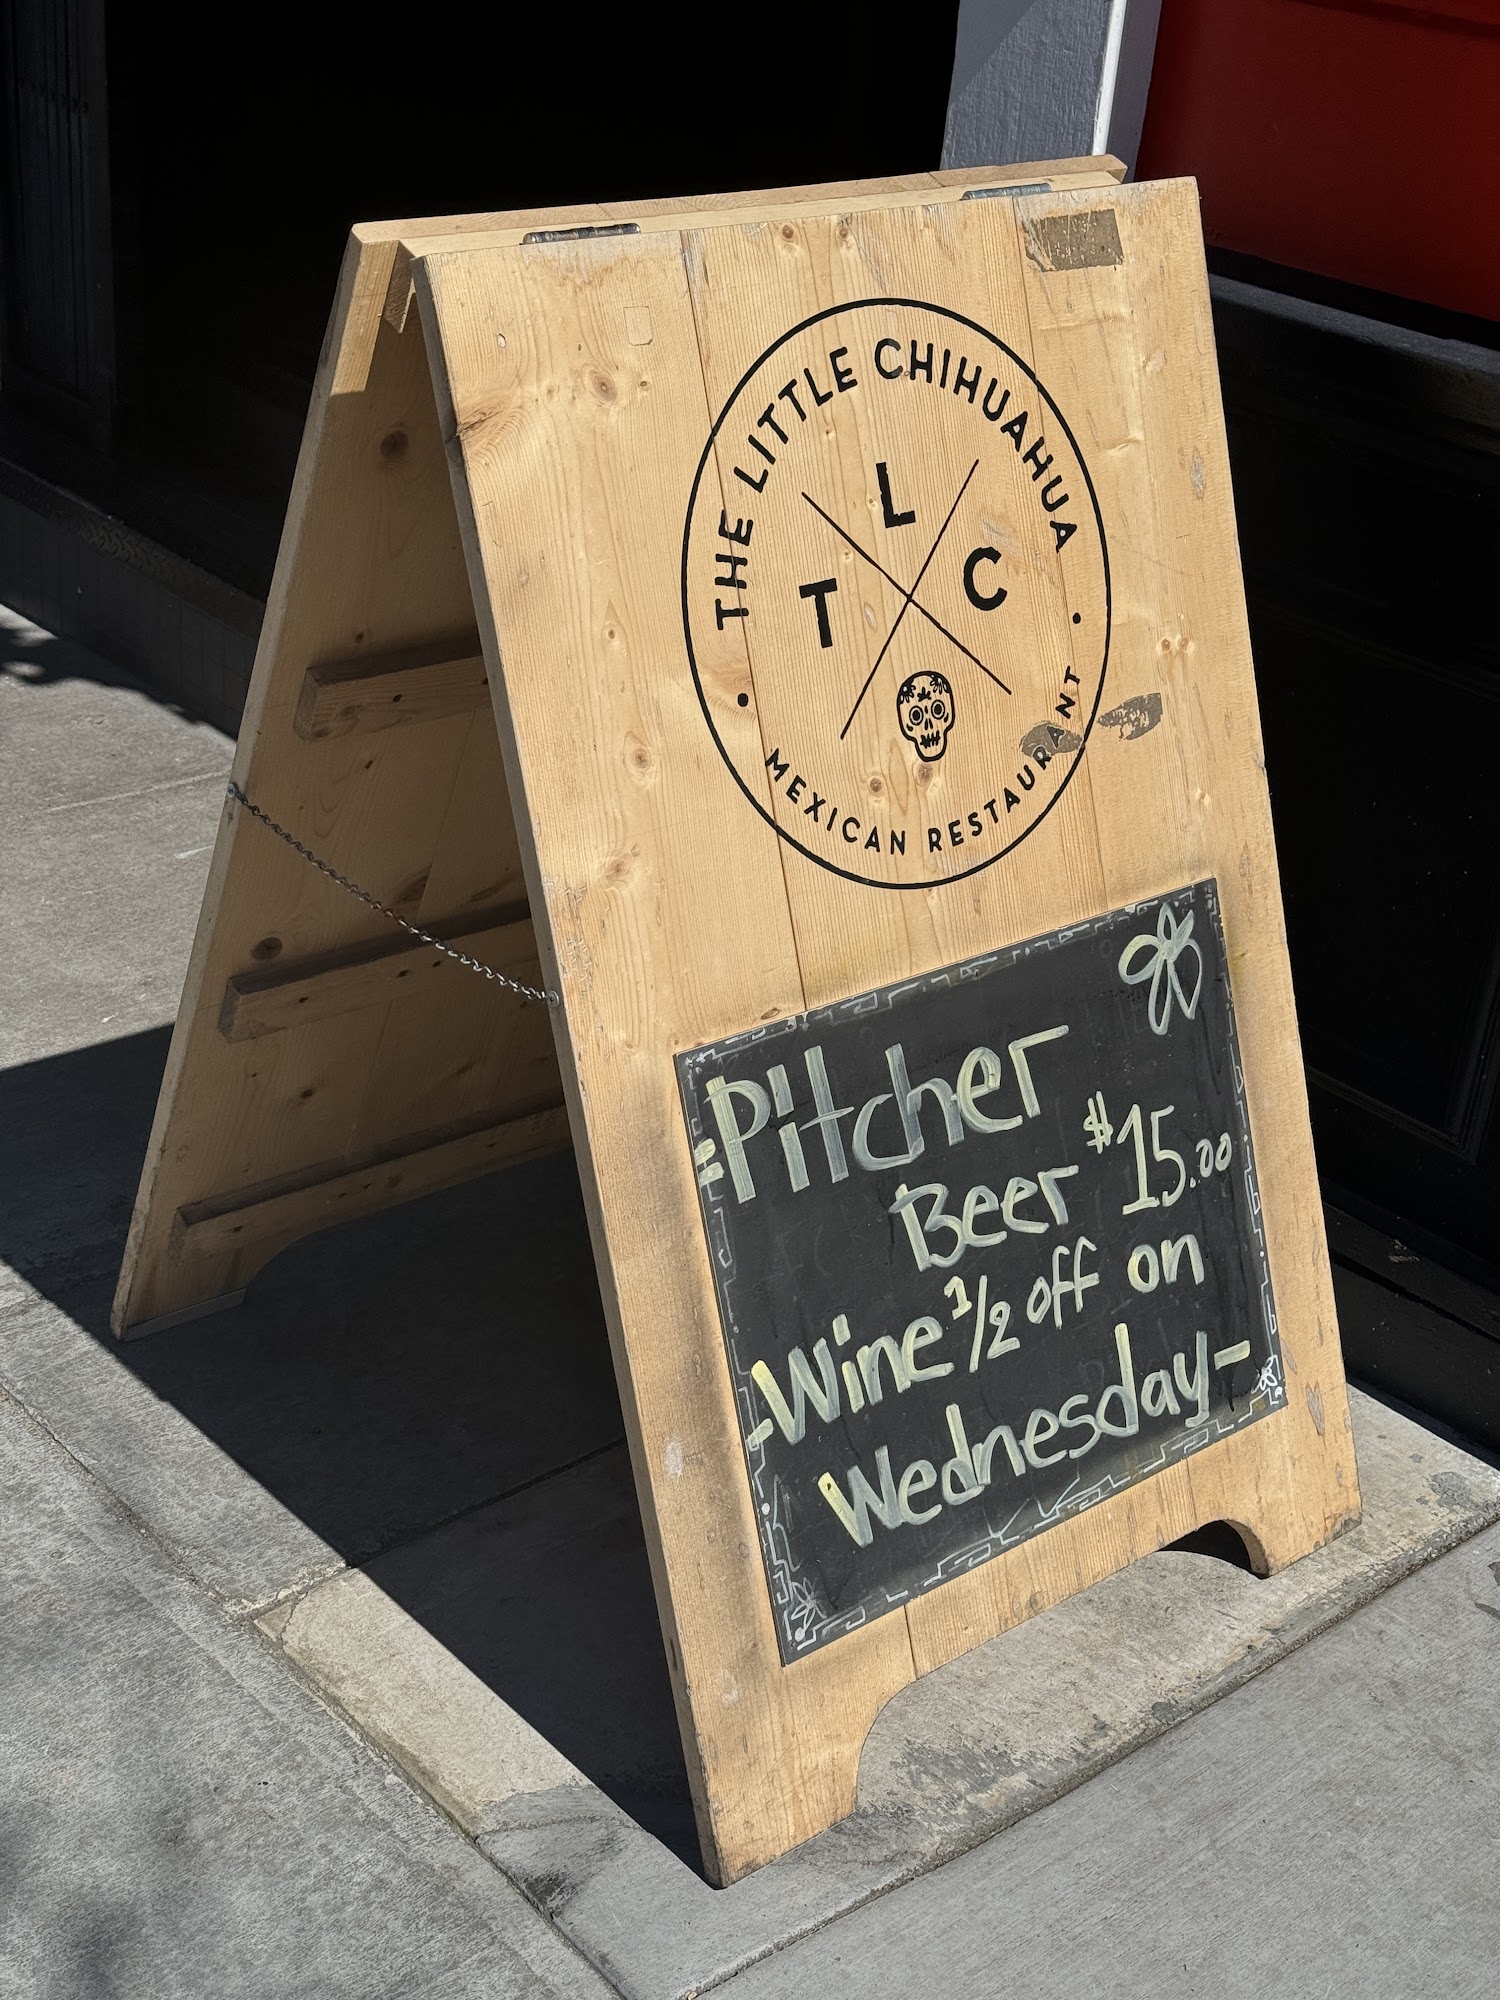 THE LITTLE CHIHUAHUA
L
T C
MEXICAN RESTAURANT
-Pitcher
Beer $15.00
-Wine 1/2 off on
Wednesday-